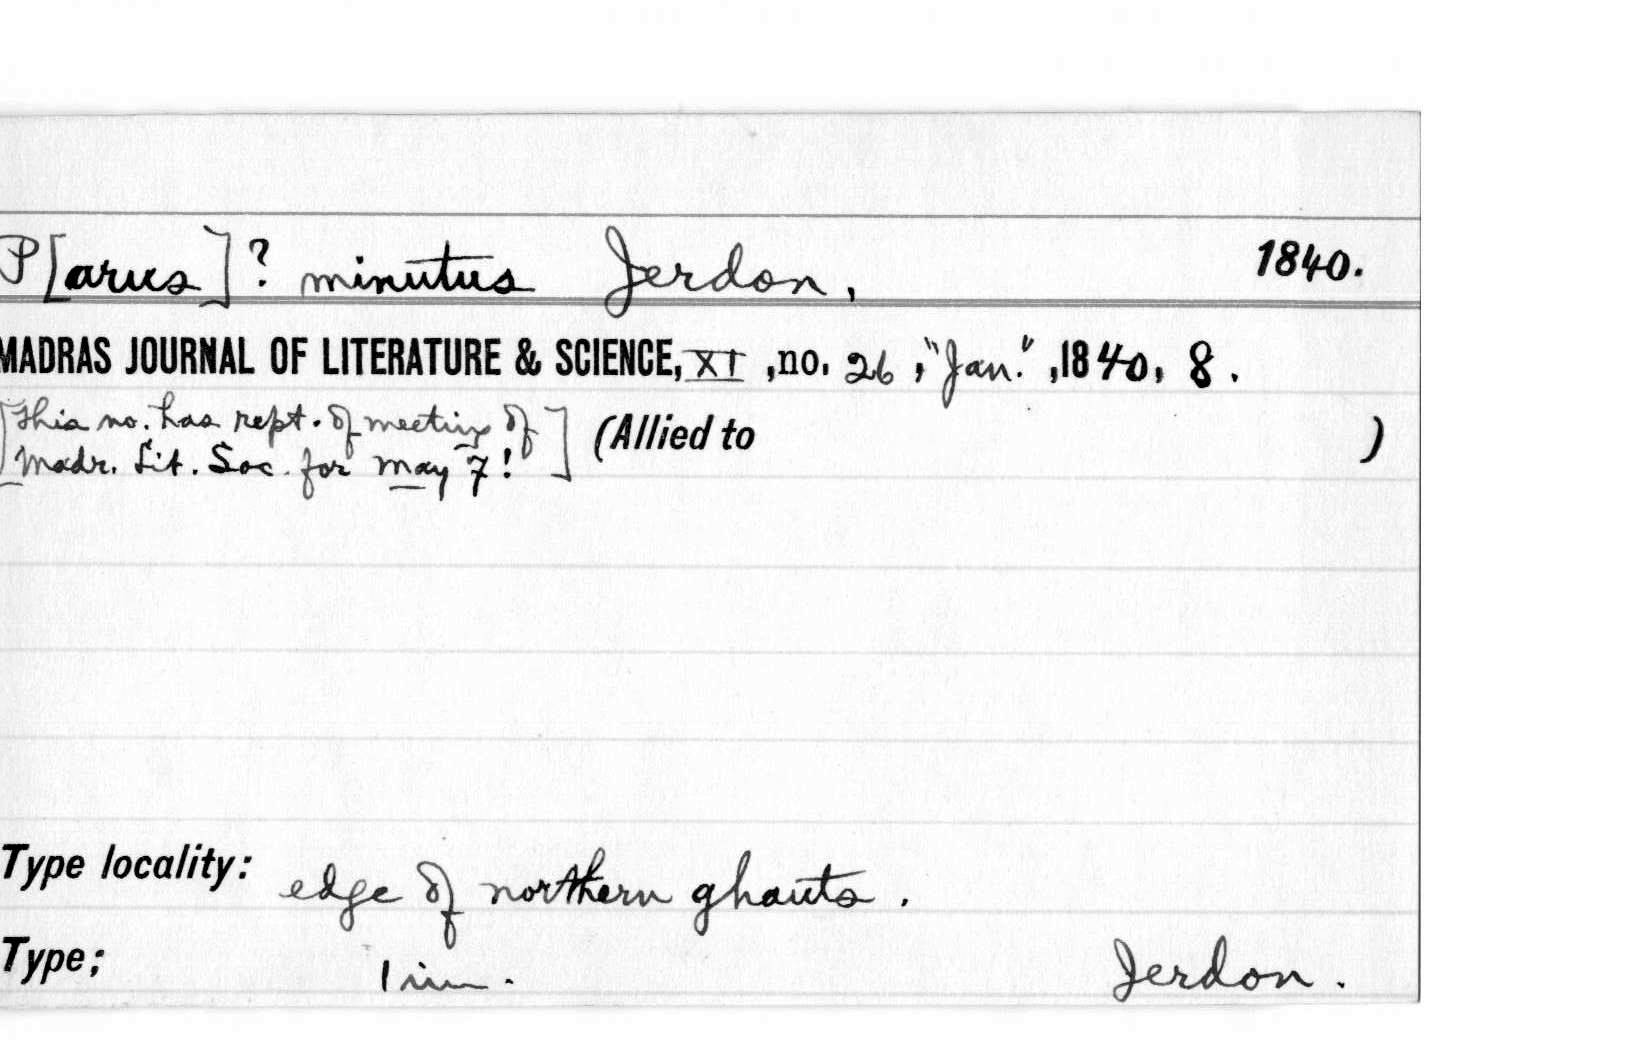 P[arus]? minutus Jerdon, 1840.
MADRAS JOURNAL OF LITERATURE & SCIENCE, XI, no. 26, "Jan.", 1840, 8.
[This no. has rept. of meeting of
Madr. Lit. Soc. for May 7!] (Allied to )
Type locality: edge of northern ghauts.
Type; 1 im. Jerdon.